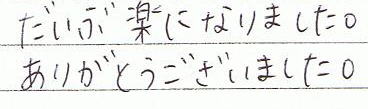 だいぶ楽になりました。
ありがとうございました。